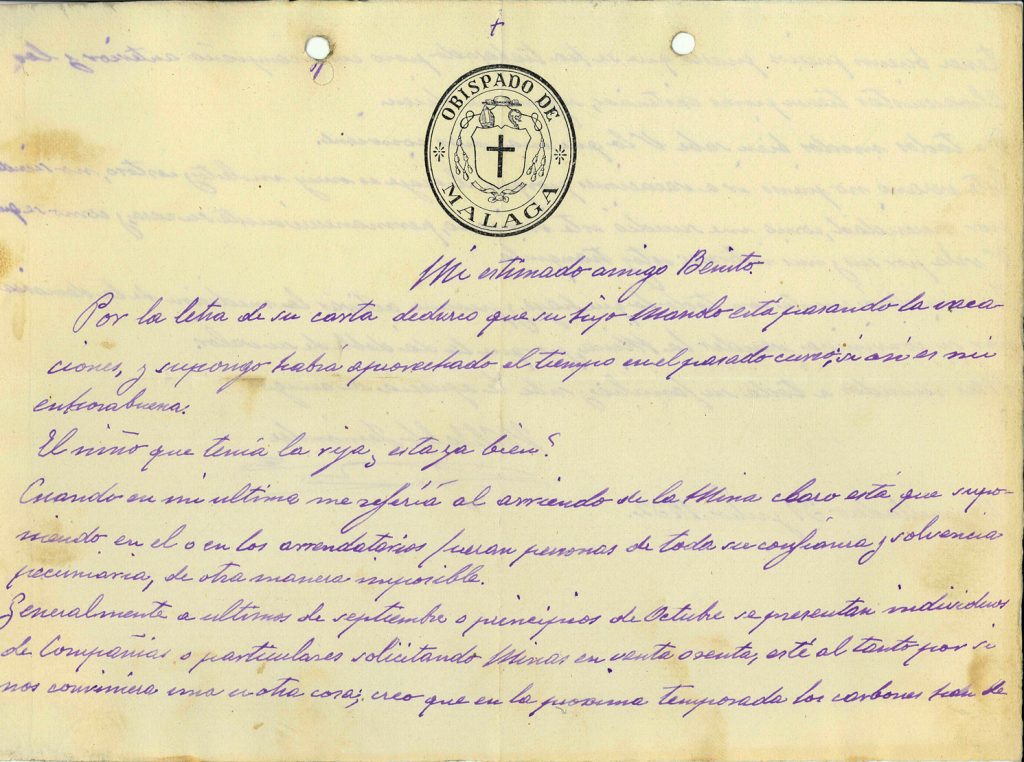 OBISPADO DE
MALAGA
Mi estimado amigo Benito.
Por la letra de su carta deduzco que su hijo Mando está pasando la vaca-
ciones, y supongo habra aprovechado el tiempo en el pasado curso; si asi es mi
enhorabuena.
El niño que tenía la rija, esta ya bien?
Cuando en mi ultima me refería al arriendo de la Mina claro está que supo-
niendo en el o en los arrendatarios fueran personas de toda su confianza y solvencia
pecuniaria, de otra manera imposible.
Generalmente a ultimos de septiembre o principios de Octubre se presentan individuos
de Compañias o particulares solicitando Minas en venta o renta, esté al tanto por si
nos conviniera una u otra cosa; creo que en la proxima temporada los carbones han de